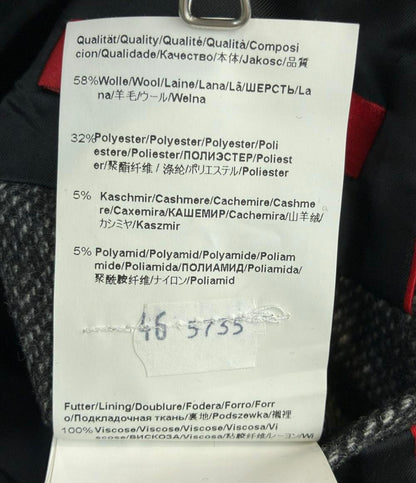 Qualität/Quality/Qualité/Qualità/Composi
cion/Qualidade/Качество/本体/Jakosc/品質
58%Wolle/Wool/Laine/Lana/Lã/ШЕРСТЬ/La
na/羊毛/ウール/Welna
32%Polyester/Polyester/Polyester/Poli
estere/Poliester/ПОЛИЭСТЕР/Poliest
er/聚酯纤维 / 涤纶/ポリエステル/Poliester
5% Kaschmir/Cashmere/Cachemire/Cashme
re/Caxemira/КАШЕМИР/Cachemira/山羊绒/
カシミヤ/Kaszmir
5% Polyamid/Polyamid/Polyamide/Poliam
mide/Poliamida/ПОЛИАМИД/Poliamida/
聚酰胺纤维/ナイロン/Poliamid
46 5735
Futter/Lining/Doublure/Fodera/Forro/Forr
o/Подкладочная ткань/裏地/Podszewka/襯裡
100% Viscose/Viscose/Viscose/Viscosa/Vi
scose/ВИСКОЗА/Viscosa/粘膠纖維/レーヨン/Wi